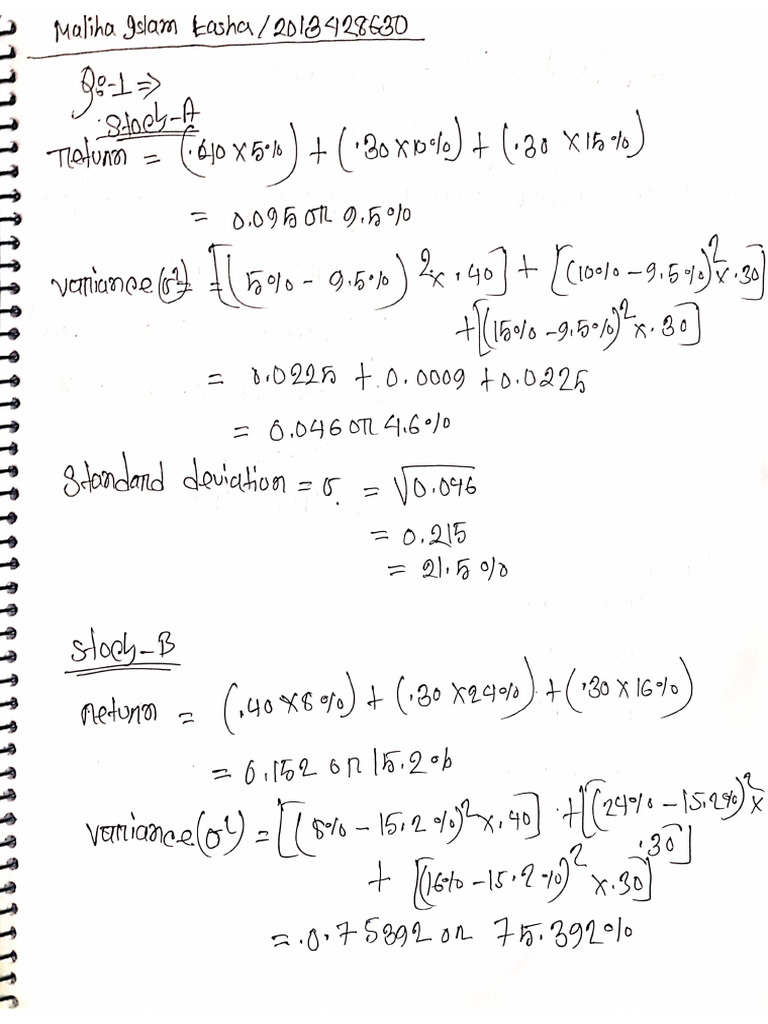 Maliha Islam Easha/2013428630
Q:-1 ⇒
Stock-A
Return = (.40 × 5%) + (.30 × 10%) + (.30 × 15%)
= 0.095 or 9.5%
Variance(σ²) = [(5% - 9.5%)² × .40] + [(10% - 9.5%)² × .30]
+ [(15% - 9.5%)² × .30]
= 0.0225 + 0.0009 + 0.0225
= 0.046 or 4.6%
Standard deviation = σ = √0.046
= 0.215
= 21.5%
Stock-B
Return = (.40 × 8%) + (.30 × 24%) + (.30 × 16%)
= 0.152 or 15.2%
Variance(σ²) = [(8% - 15.2%)² × .40] + [(24% - 15.2%)² ×
.30]
+ [(16% - 15.2%)² × .30]
= 0.75392 or 75.392%